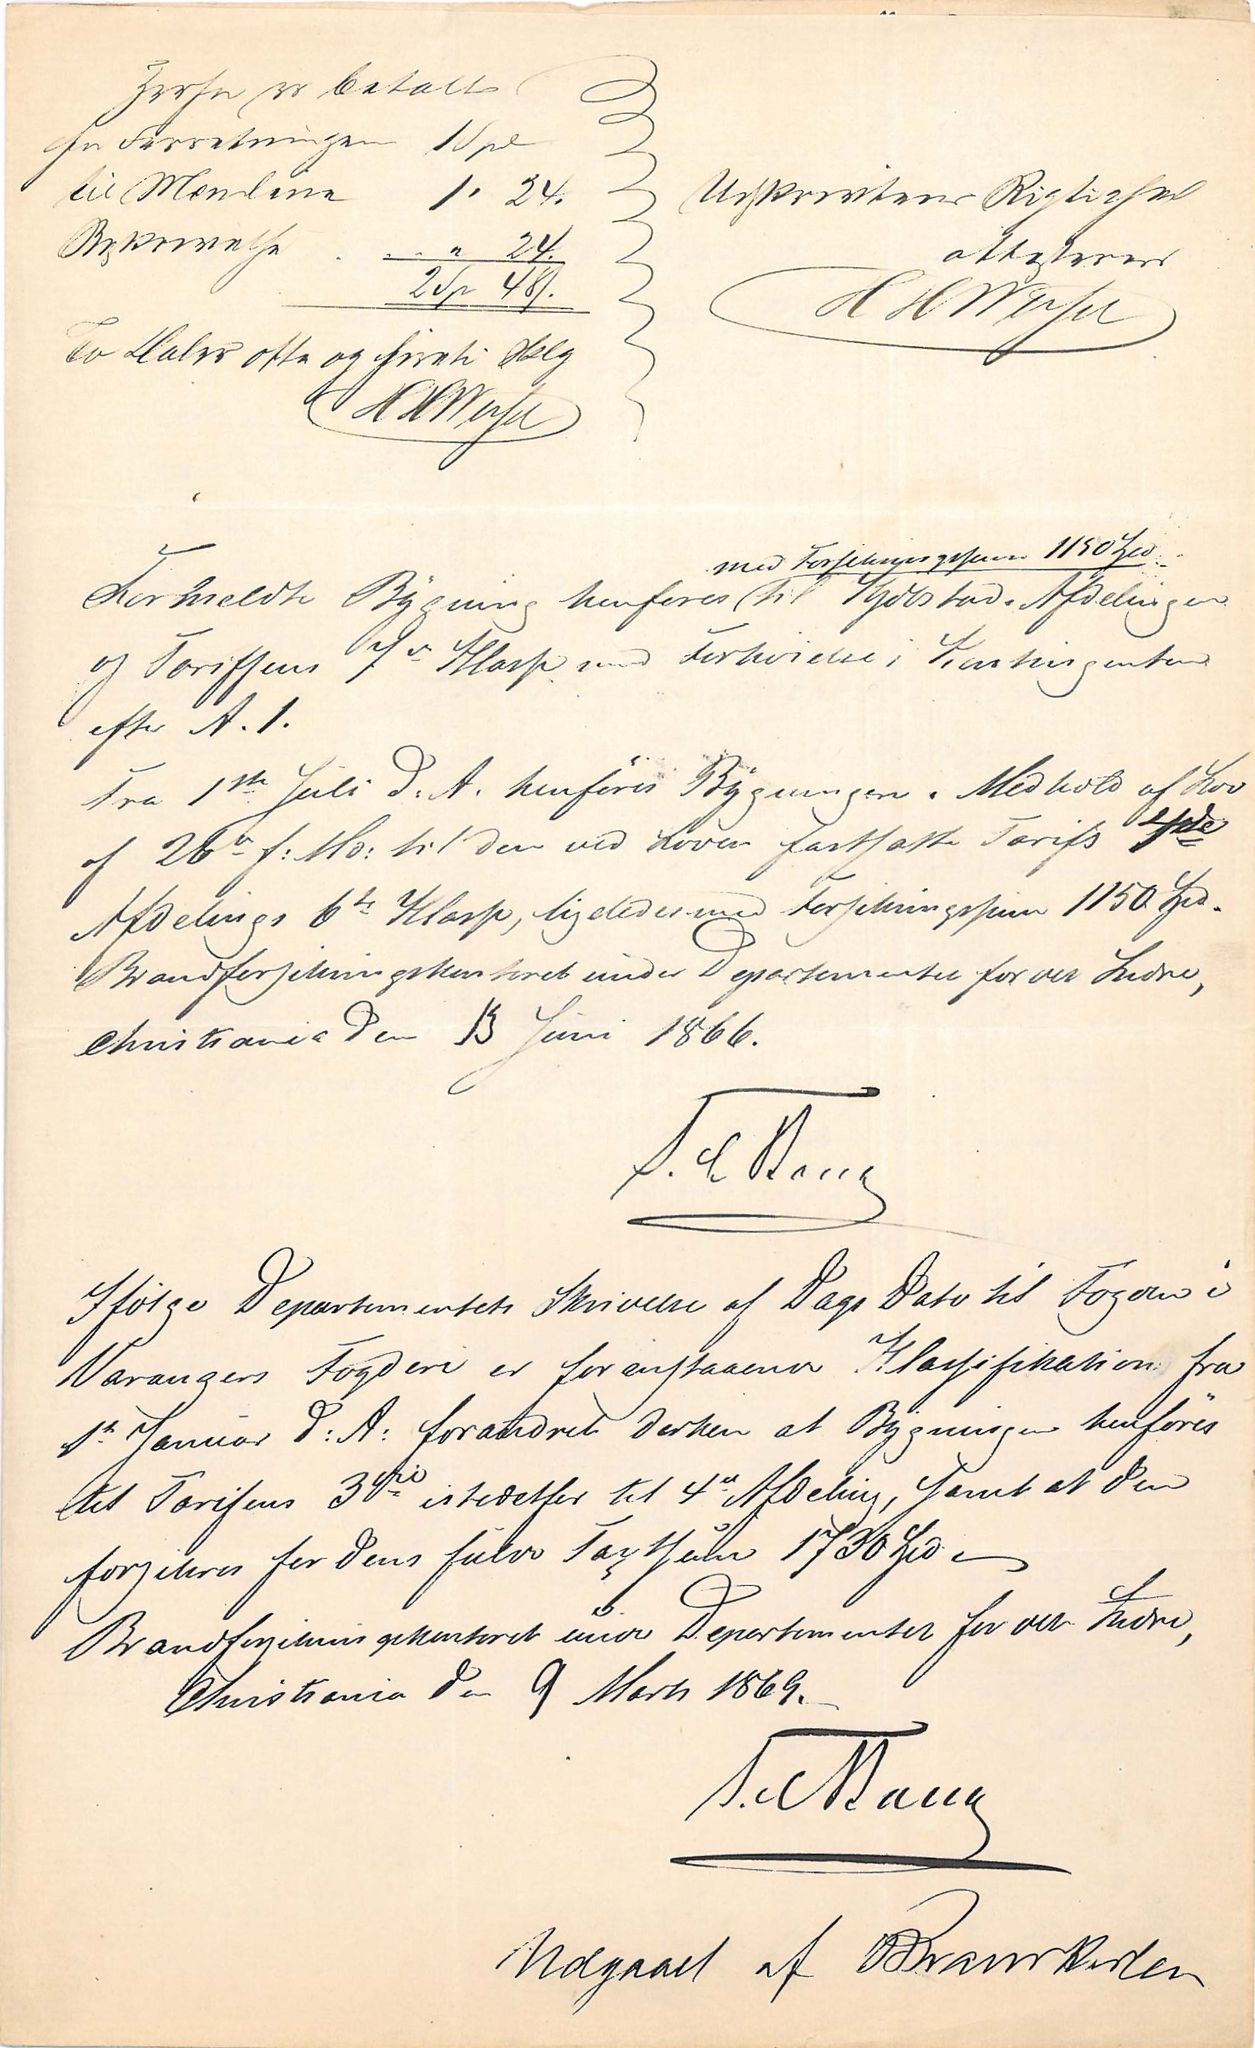 Herfor er betalt
for Forretningen 1 Spd
til Mændene 1. 24.
Beskrivelse . . . " 24.
2 Spd 48 s.
To Daler otte og firti Skg
HHWessel
Udskriftens Rigtighed
attesterer
H H Wessel
med Forsikringssum 1150 Spd.
Formeldte Bygning henføres til Kjøbstad-Afdelingen
og Tariffens 7de Klasse med Forhøielse i Kontingenten
efter A. 1.
Fra 1ste Juli d. A. henføres Bygningen i Medhold af Lov
af 26de f: Md: til den ved Loven fastsatte Tarifs 4de
Afdelings 6te Klasse, ligeledes med Forsikringssum 1150 Spd.
Brandforsikringskontoret under Departementet for det Indre,
Christiania den 13 Juni 1866.
Ifølge Departementets Skrivelse af Dags Dato til Fogden i
Varangers Fogderi er foranstaaende Klassifikation fra
1ste Januar d: A: forandret derhen at Bygningen henføres
til Tarifens 3die istedetfor til 4de Afdeling, samt at den
forsikres for dens fulde Taxtsum 1730 Spd
Brandforsikringskontoret under Departementet for det Indre,
Christiania den 9 Marts 1869.
Udgaaet af Brandkassen